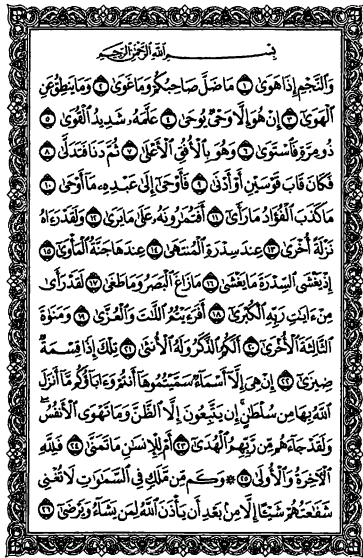 بِسْمِ اللَّهِ الرَّحْمَٰنِ الرَّحِيمِ
وَالنَّجْمِ إِذَا هَوَىٰ ١ مَا ضَلَّ صَاحِبُكُمْ وَمَا غَوَىٰ ٢ وَمَا يَنطِقُ عَنِ
الْهَوَىٰ ٣ إِنْ هُوَ إِلَّا وَحْيٌ يُوحَىٰ ٤ عَلَّمَهُ شَدِيدُ الْقُوَىٰ ٥
ذُو مِرَّةٍ فَاسْتَوَىٰ ٦ وَهُوَ بِالْأُفُقِ الْأَعْلَىٰ ٧ ثُمَّ دَنَا فَتَدَلَّىٰ ٨
فَكَانَ قَابَ قَوْسَيْنِ أَوْ أَدْنَىٰ ٩ فَأَوْحَىٰ إِلَىٰ عَبْدِهِ مَا أَوْحَىٰ ١٠
مَا كَذَبَ الْفُؤَادُ مَا رَأَىٰ ١١ أَفَتُمَارُونَهُ عَلَىٰ مَا يَرَىٰ ١٢ وَلَقَدْ رَءَاهُ
نَزْلَةً أُخْرَىٰ ١٣ عِندَ سِدْرَةِ الْمُنتَهَىٰ ١٤ عِندَهَا جَنَّةُ الْمَأْوَىٰ ١٥
إِذْ يَغْشَى السِّدْرَةَ مَا يَغْشَىٰ ١٦ مَا زَاغَ الْبَصَرُ وَمَا طَغَىٰ ١٧ لَقَدْ رَأَىٰ
مِنْ ءَايَٰتِ رَبِّهِ الْكُبْرَىٰ ١٨ أَفَرَءَيْتُمُ اللَّٰتَ وَالْعُزَّىٰ ١٩ وَمَنَوٰةَ
الثَّالِثَةَ الْأُخْرَىٰ ٢٠ أَلَكُمُ الذَّكَرُ وَلَهُ الْأُنثَىٰ ٢١ تِلْكَ إِذًا قِسْمَةٌ
ضِيزَىٰ ٢٢ إِنْ هِيَ إِلَّا أَسْمَاءٌ سَمَّيْتُمُوهَا أَنتُمْ وَءَابَاؤُكُم مَّا أَنزَلَ
اللَّهُ بِهَا مِن سُلْطَٰنٍ إِن يَتَّبِعُونَ إِلَّا الظَّنَّ وَمَا تَهْوَى الْأَنفُسُ
وَلَقَدْ جَاءَهُم مِّن رَّبِّهِمُ الْهُدَىٰ ٢٣ أَمْ لِلْإِنسَٰنِ مَا تَمَنَّىٰ ٢٤ فَلِلَّهِ
الْآخِرَةُ وَالْأُولَىٰ ٢٥ ۞ وَكَم مِّن مَّلَكٍ فِي السَّمَٰوَٰتِ لَا تُغْنِي
شَفَٰعَتُهُمْ شَيْئًا إِلَّا مِن بَعْدِ أَن يَأْذَنَ اللَّهُ لِمَن يَشَاءُ وَيَرْضَىٰ ٢٦